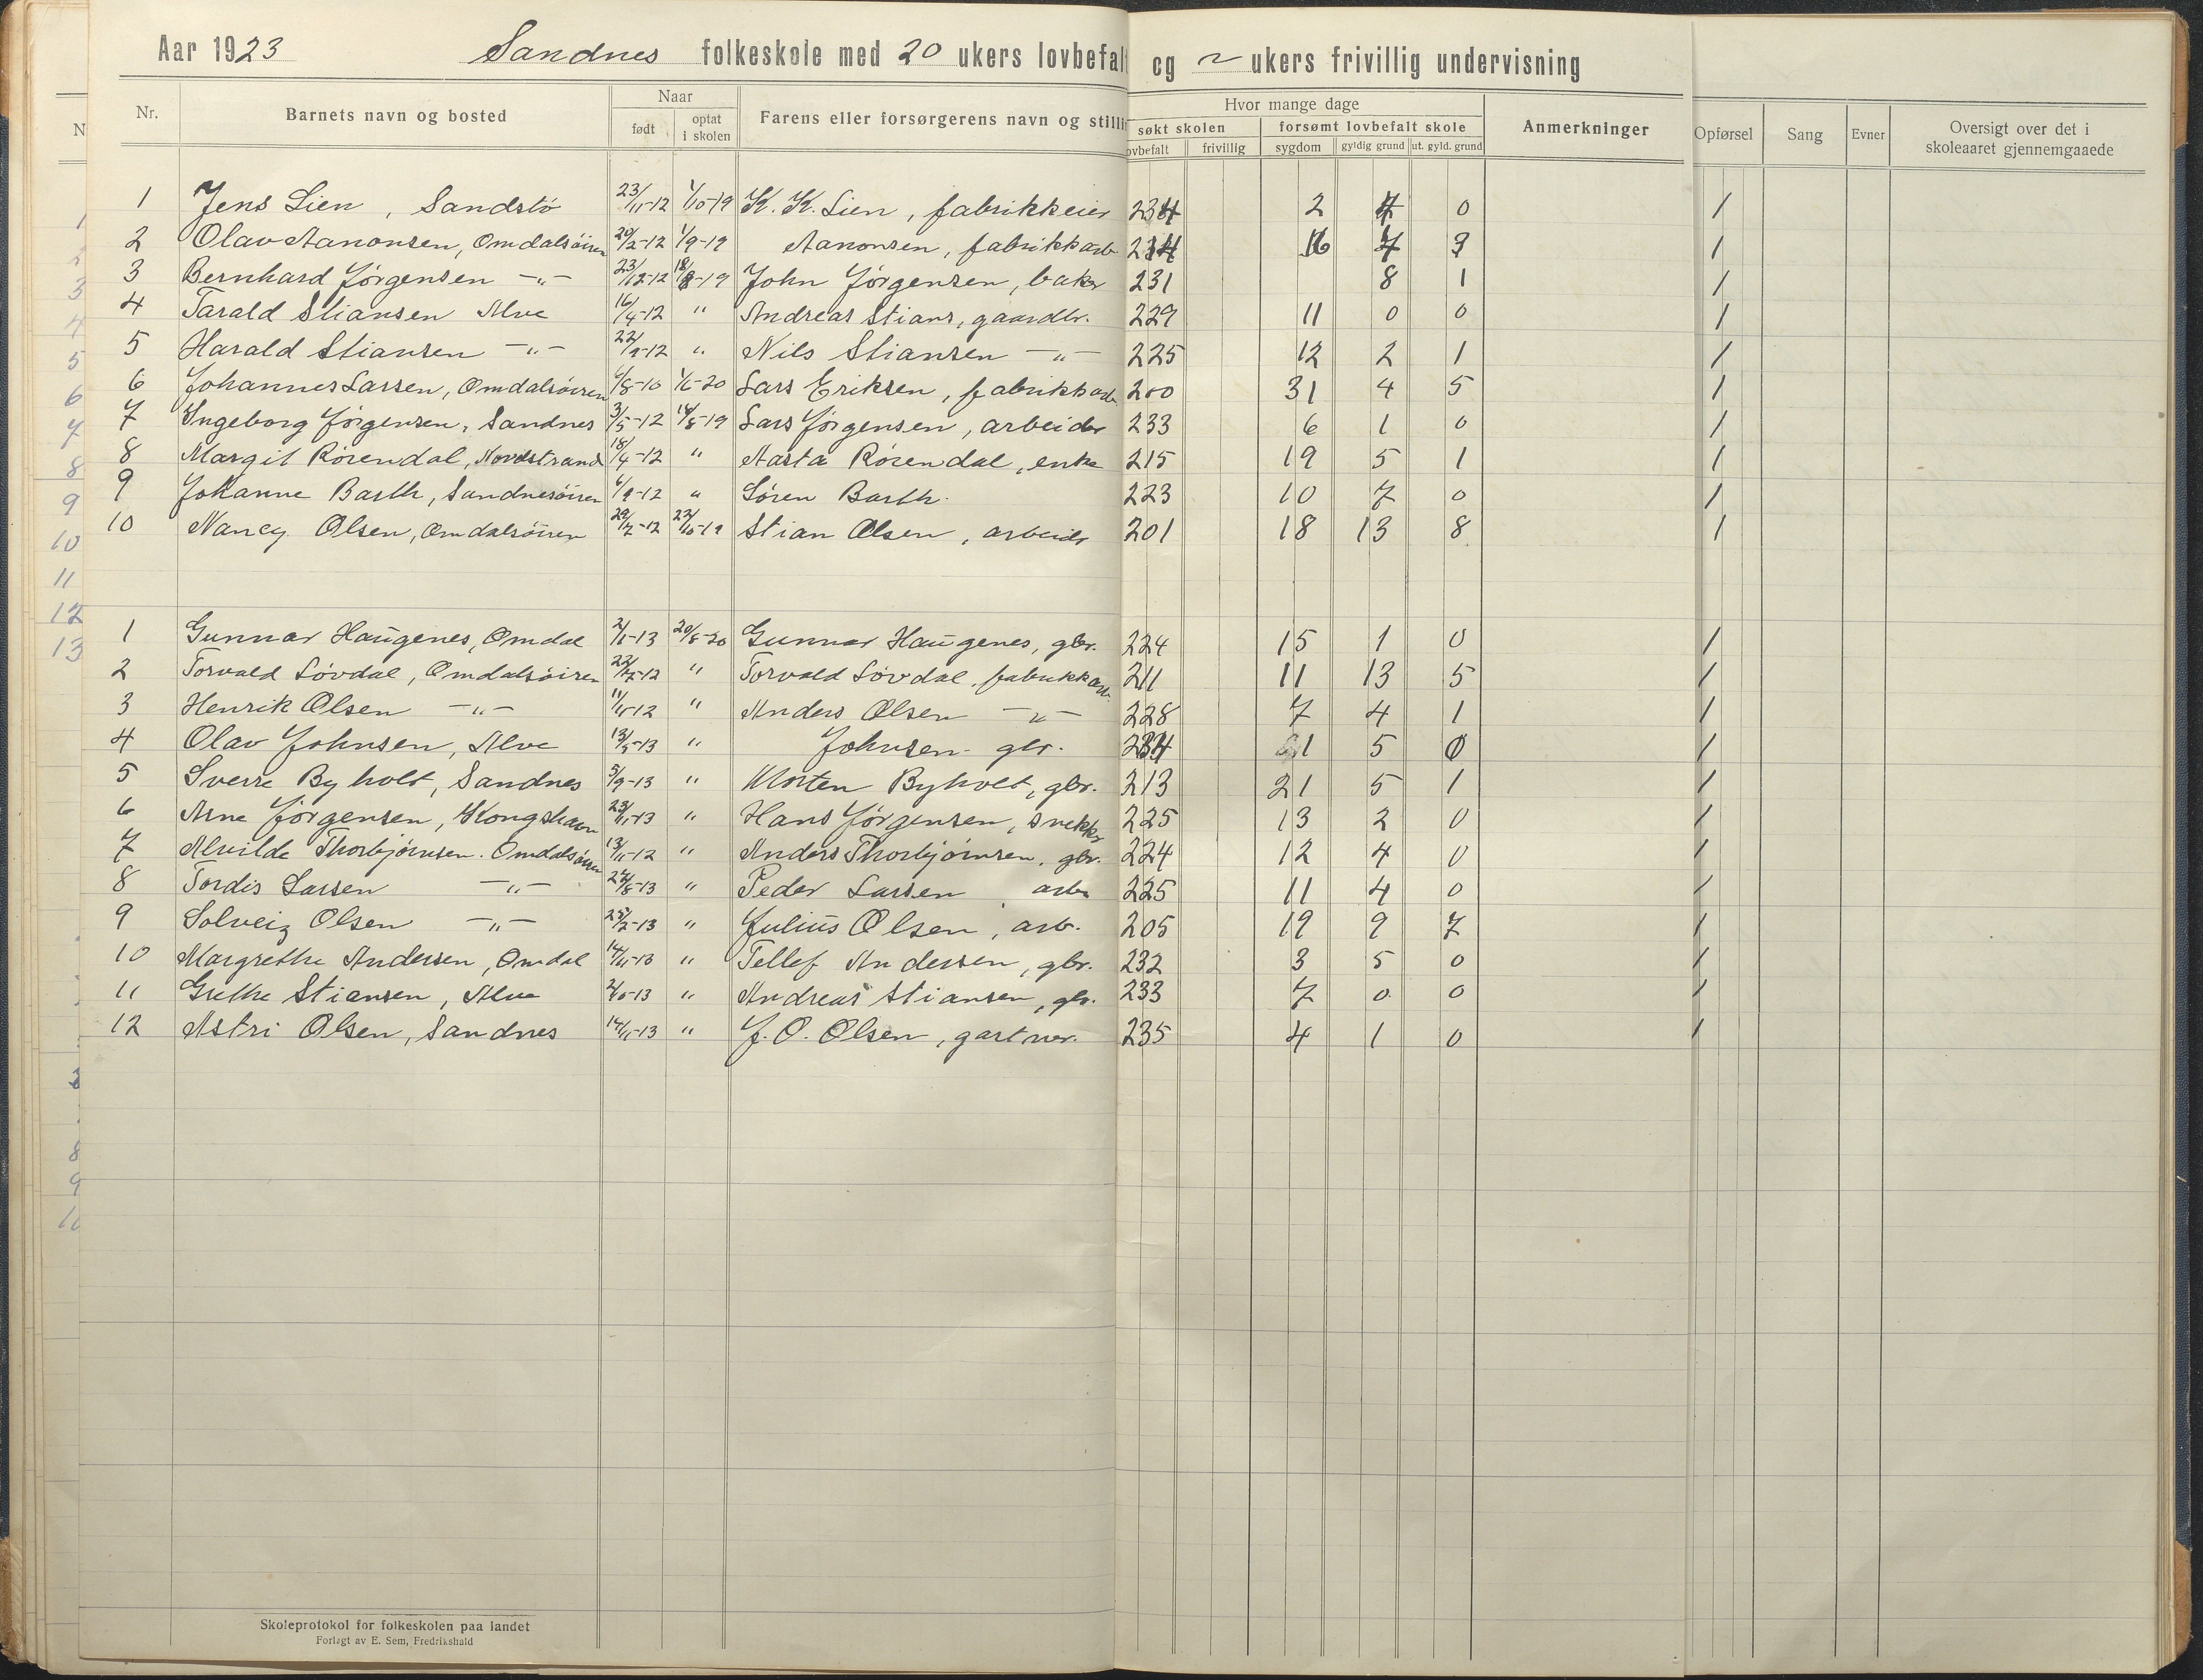 Aar 1923 Sandnes folkeskole med 20 ukers lovbefal og ~ ukers frivillig undervisning
Nr. Barnets navn og bosted Naar Farens eller forsørgerens navn og stilli Hvor mange dage Anmerkninger Opførsel Sang Evner Oversigt over det i skoleaaret gjennemgaaede
født optat i skolen søkt skolen forsømt lovbefalt skole
ovbefalt frivillig sygdom gyldig grund ut. gyld. grund
1 Jens Lien, Sandstø 23/11-12 1/10-19 K. K. Lien, fabrikkeier 234 2 4 0 1
2 Olav Aanonsen, Omdalsøiren 29/2-12 1/9-19 Aanonsen, fabrikkarb. 214 16 7 1
3 Bernhard Jørgensen -"- 23/12-12 18/8-19 John Jørgensen, baker 231 8 1 1
4 Tarald Stiansen Alve 16/4-12 " Andreas Stians, gaardbr. 229 11 0 0 1
5 Harald Stiansen -"- 22/9-12 " Nils Stiansen -"- 225 12 2 1 1
6 Johannes Larsen, Omdalsøiren 6/8-10 1/6-20 Lars Eriksen, fabrikkarb. 200 31 4 5 1
7 Ingeborg Jørgensen, Sandnes 3/5-12 18/8-19 Lars Jørgensen, arbeider 233 6 1 0 1
8 Margit Rösendal, Nordstrand 18/4-12 " Aasta Rösendal, enke 215 19 5 1 1
9 Johanne Barth, Sandnesøiren 6/9-12 " Søren Barth. 223 10 7 0 1
10 Nancy Olsen, Omdalsøiren 29/7-12 22/10-19 Stian Olsen, arbeider 201 18 13 8 1
1 Gunnar Haugenes, Omdal 2/1-13 20/8-20 Gunnar Haugenes, gbr. 224 15 1 0 1
2 Torvald Løvdal, Omdalsøiren 22/12-12 " Torvald Løvdal, fabrikkarb. 211 11 13 5 1
3 Henrik Olsen -"- 11/11-12 " Anders Olsen -"- 228 7 4 1 1
4 Olav Johnsen, Alve 13/5-13 " Johnsen gbr. 234 1 5 0 1
5 Sverre Byholt, Sandnes 5/9-13 " Morten Byholt, gbr. 213 21 5 1 1
6 Arne Jørgensen, Kongshavn 23/11-13 " Hans Jørgensen, snekker 225 13 2 0 1
7 Alvilde Thorbjørnsen. Omdalsøiren 13/11-12 " Anders Thorbjørnsen, gbr. 224 12 4 0 1
8 Tordis Larsen -"- 24/8-13 " Peder Larsen arb. 225 11 4 0 1
9 Solveig Olsen -"- 25/2-13 " Julius Olsen, arb. 205 19 9 7 1
10 Margrethe Andersen, Omdal 14/11-13 " Tellef Andersen, gbr. 232 3 5 0 1
11 Grethe Stiansen, Alve 2/10-13 " Andreas Stiansen, gbr. 233 7 0 0 1
12 Astri Olsen, Sandnes 14/11-13 " J. O. Olsen, gartner. 235 4 1 0 1
Skoleprotokol for folkeskolen paa landet
Forlagt av E. Sem, Fredrikshald